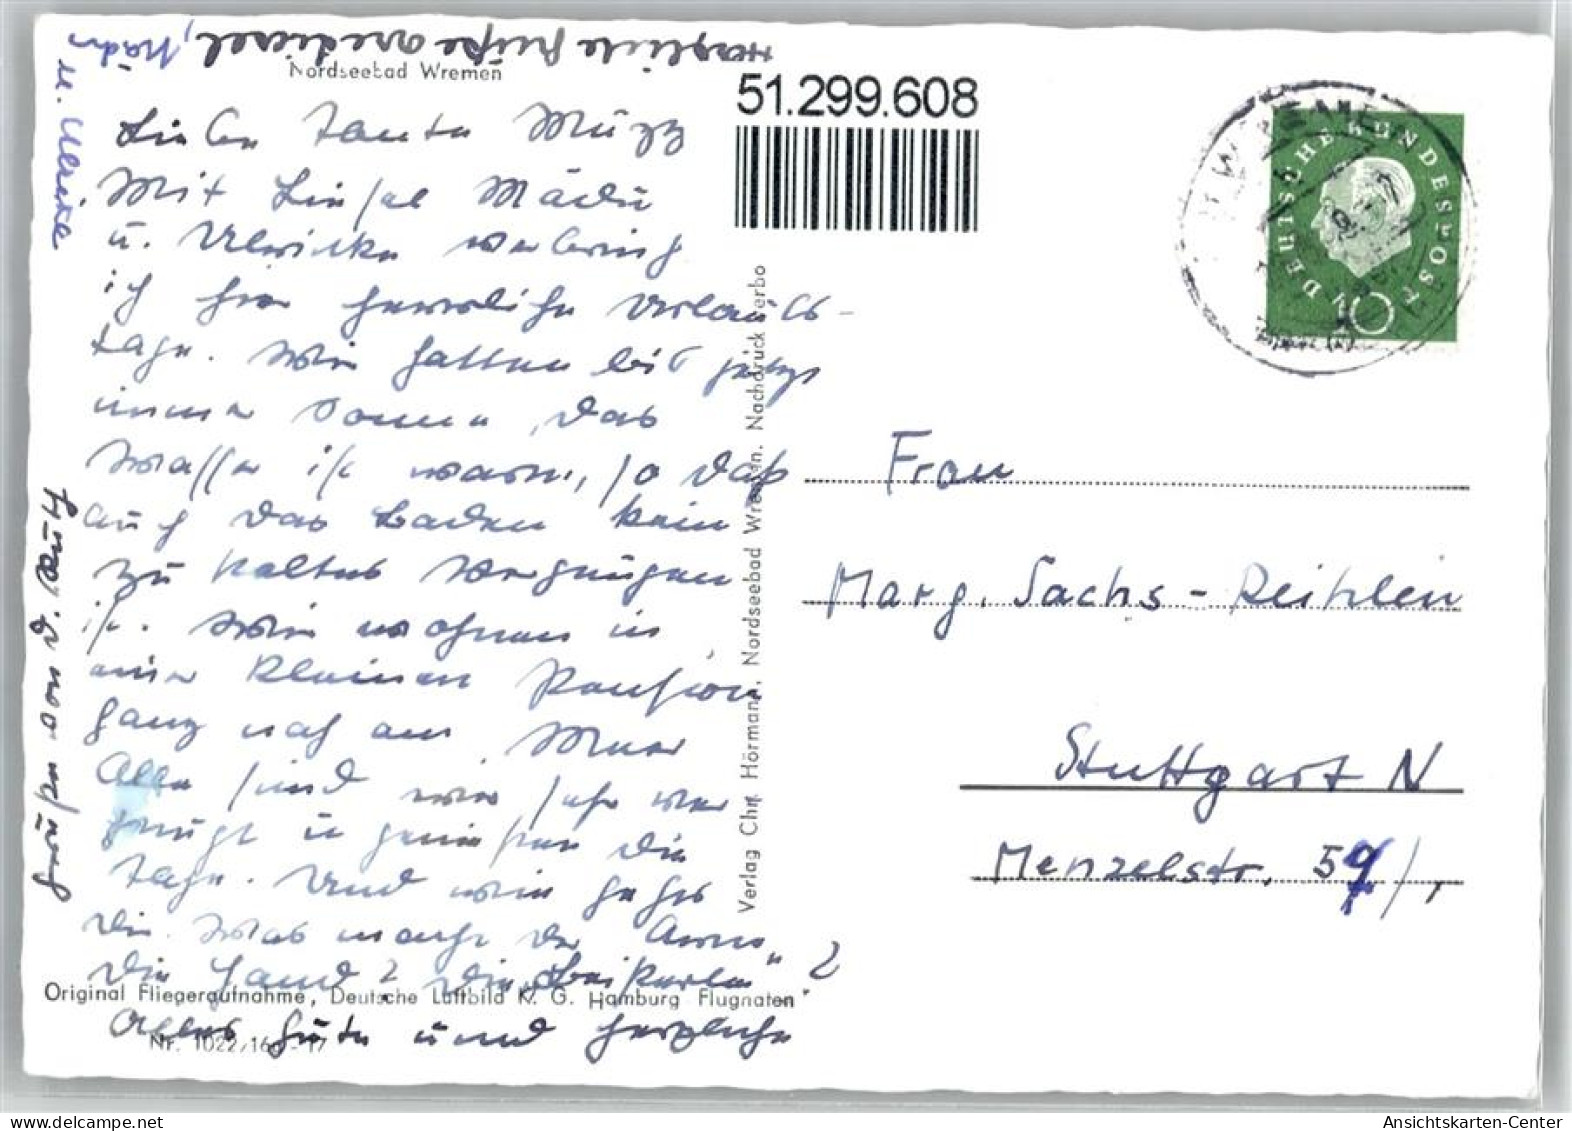 Nordseebad Wremen
Liebe Tante Mugg
Mit Liesel Mädi
u. Ulrike verbring
ich hier herrliche Urlaubs-
tage. Wir hatten bis jetzt
immer Sonne, das
Wasser ist warm, so daß
auch das Baden kein
zu kaltes Vergnügen
ist. Wir wohnen in
einer kleinen Pension
ganz nah am Meer
Alle sind wir sehr ver
gnügt u genießen die
Tage. Und wie gehts
Dir. Was macht der Arm
die Hand? die
Alles Gute und herzliche
Grüße von
herzliche Grüße
Mädi
u. Ulrike
51.299.608
DEUTSCHE BUNDESPOST
10
Frau
Marg. Sachs-Reihlen
Stuttgart N
Menzelstr.
Verlag Chr. Hörmann, Nordseebad Wremen. Nachdruck verbo
Original Fliegeraufnahme, Deutsche Luftbild K. G. Hamburg Flugnaten
Ansichtskarten-Center